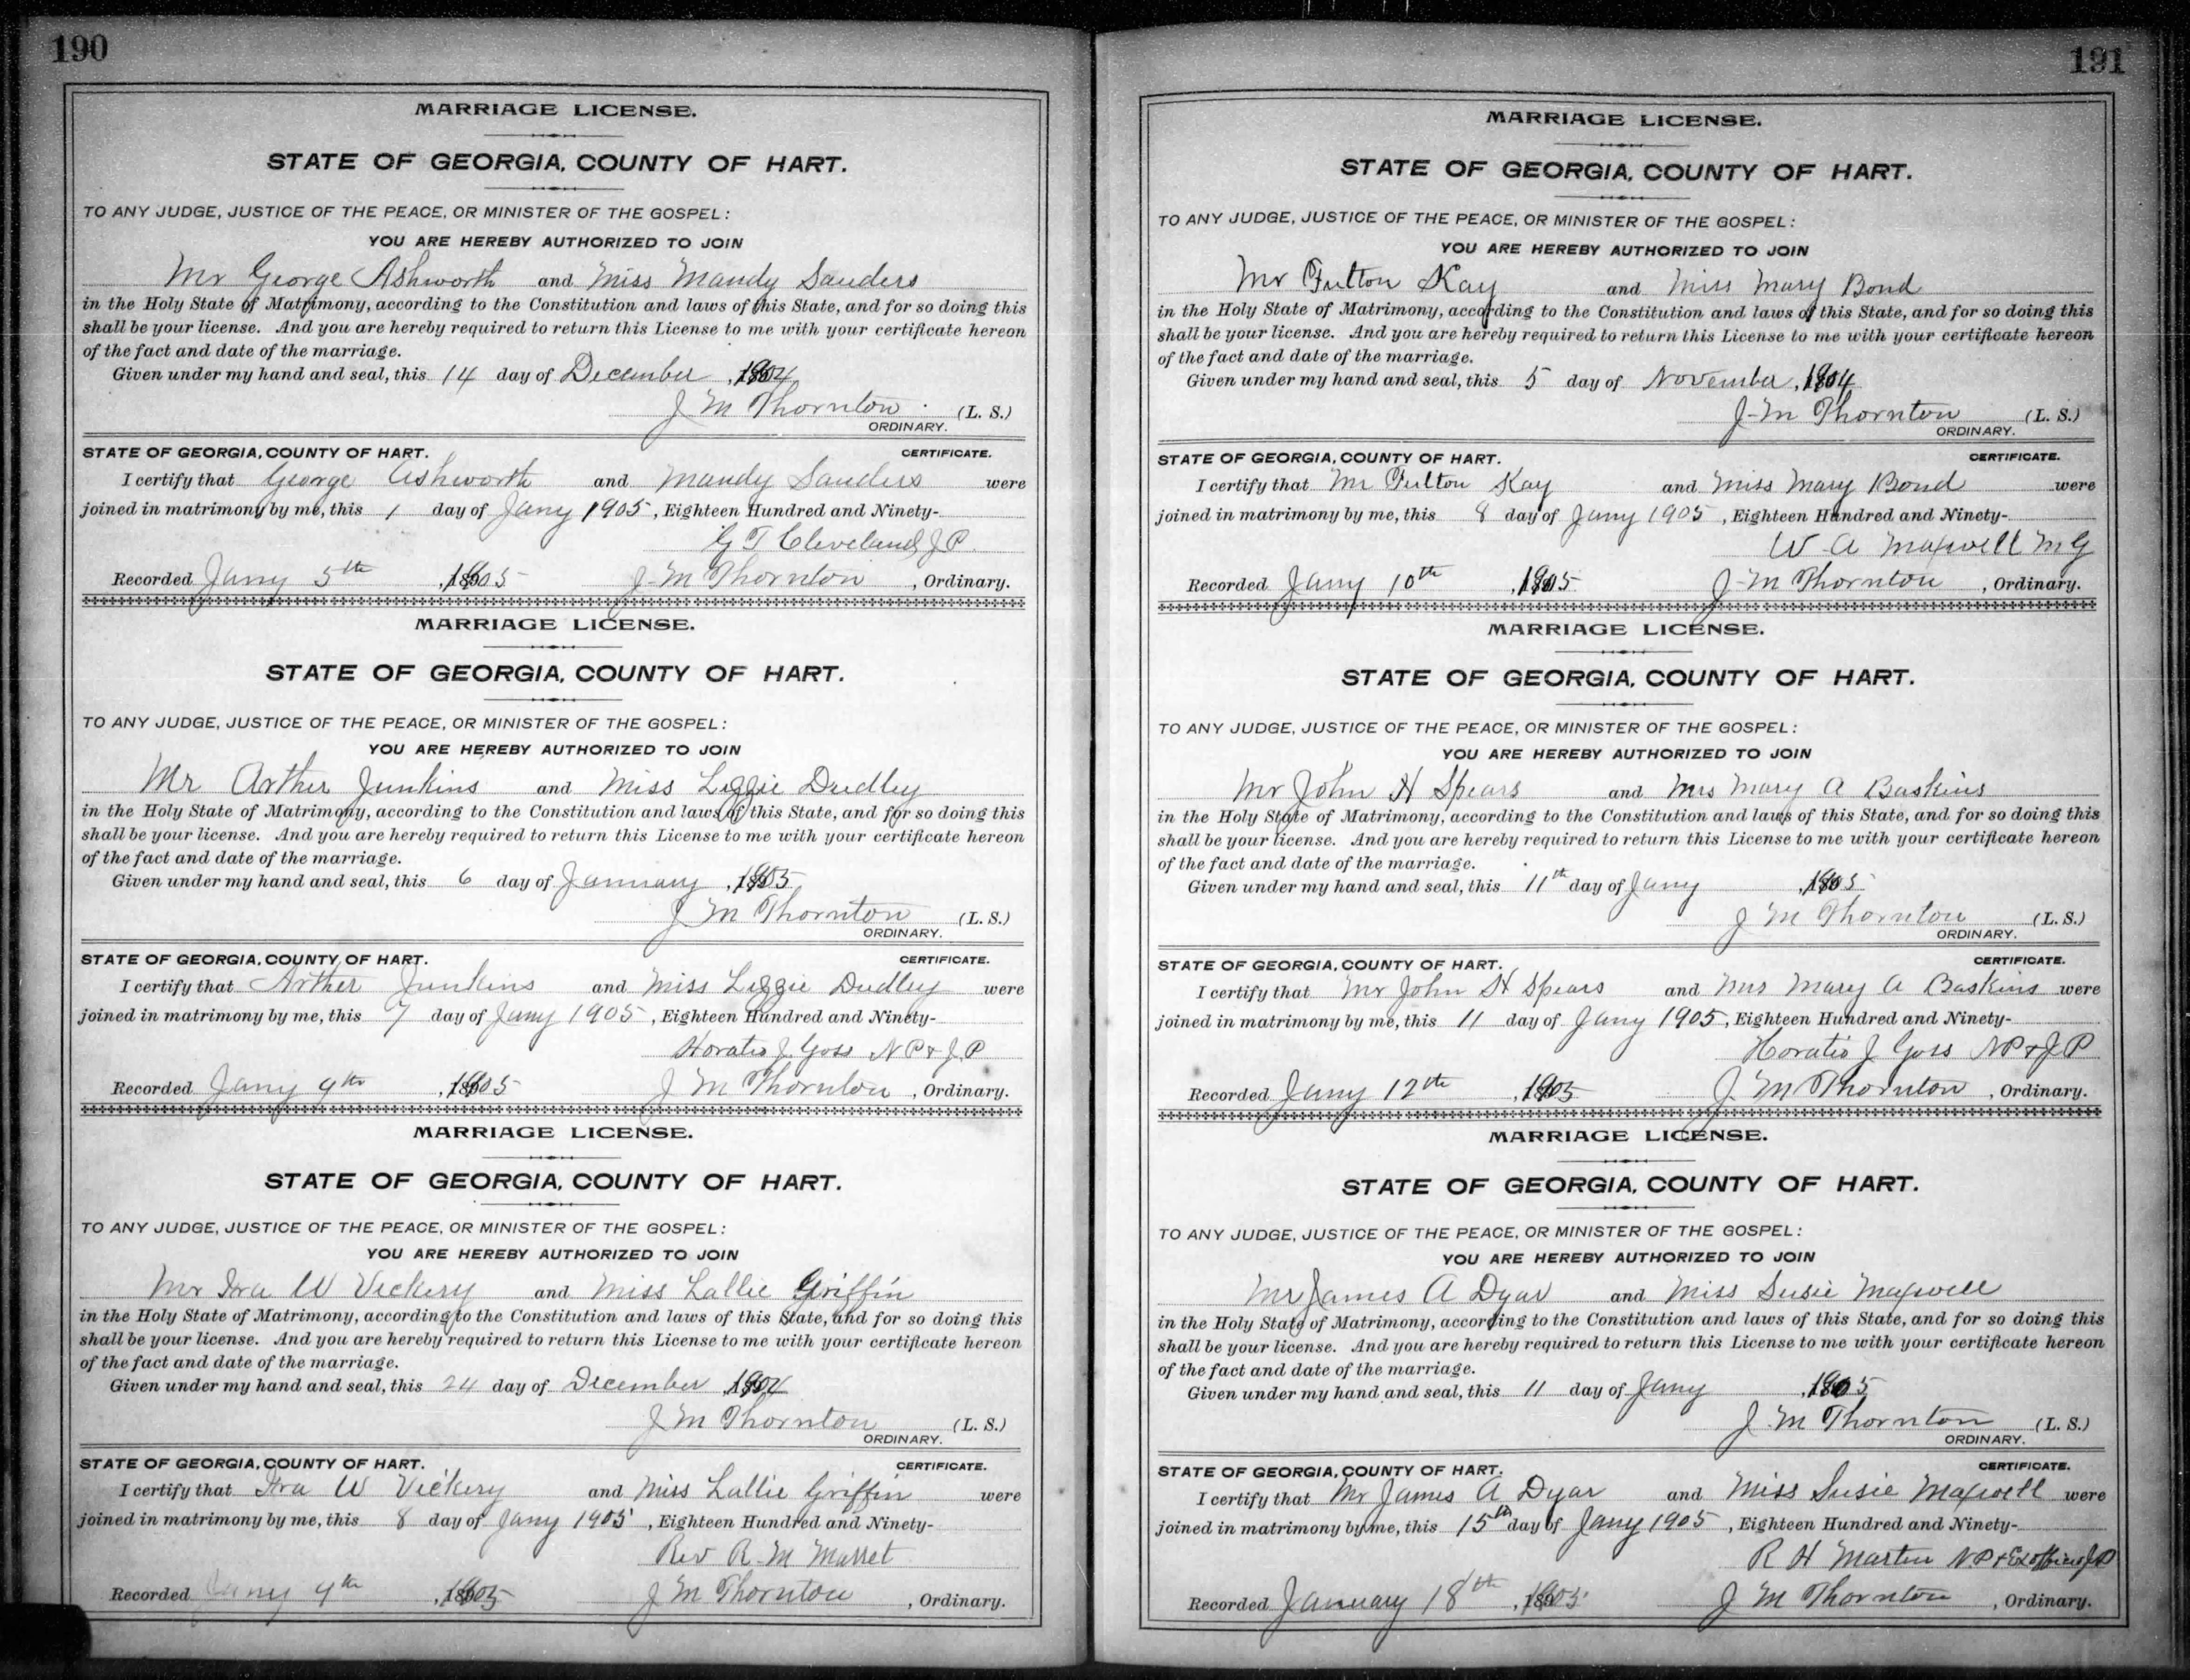 190
MARRIAGE LICENSE.
STATE OF GEORGIA, COUNTY OF HART.
TO ANY JUDGE, JUSTICE OF THE PEACE, OR MINISTER OF THE GOSPEL:
YOU ARE HEREBY AUTHORIZED TO JOIN
Mr George Ashworth and Miss Mandy Sanders
in the Holy State of Matrimony, according to the Constitution and laws of this State, and for so doing this
shall be your license. And you are hereby required to return this License to me with your certificate hereon
of the fact and date of the marriage.
Given under my hand and seal, this 14 day of December, 1904
J M Thornton (L. S.)
ORDINARY.
STATE OF GEORGIA, COUNTY OF HART. CERTIFICATE.
I certify that George Ashworth and Mandy Sanders were
joined in matrimony by me, this 1 day of Jany 1905, Eighteen Hundred and Ninety-
G T Cleveland J P.
Recorded Jany 5th, 1905 J M Thornton, Ordinary.
MARRIAGE LICENSE.
STATE OF GEORGIA, COUNTY OF HART.
TO ANY JUDGE, JUSTICE OF THE PEACE, OR MINISTER OF THE GOSPEL:
YOU ARE HEREBY AUTHORIZED TO JOIN
Mr Arther Junkins and Miss Lizzie Dudley
in the Holy State of Matrimony, according to the Constitution and laws of this State, and for so doing this
shall be your license. And you are hereby required to return this License to me with your certificate hereon
of the fact and date of the marriage.
Given under my hand and seal, this 6 day of January, 1905
J M Thornton (L. S.)
ORDINARY.
STATE OF GEORGIA, COUNTY OF HART. CERTIFICATE.
I certify that Arther Junkins and Miss Lizzie Dudley were
joined in matrimony by me, this 7 day of Jany 1905, Eighteen Hundred and Ninety-
Horatio J. Goss N P & J. P
Recorded Jany 9th, 1905 J M Thornton, Ordinary.
MARRIAGE LICENSE.
STATE OF GEORGIA, COUNTY OF HART.
TO ANY JUDGE, JUSTICE OF THE PEACE, OR MINISTER OF THE GOSPEL:
YOU ARE HEREBY AUTHORIZED TO JOIN
Mr Ira W Vickery and Miss Lallie Griffin
in the Holy State of Matrimony, according to the Constitution and laws of this State, and for so doing this
shall be your license. And you are hereby required to return this License to me with your certificate hereon
of the fact and date of the marriage.
Given under my hand and seal, this 24 day of December 1904
J M Thornton (L. S.)
ORDINARY.
STATE OF GEORGIA, COUNTY OF HART. CERTIFICATE.
I certify that Ira W Vickery and Miss Lallie Griffin were
joined in matrimony by me, this 8 day of Jany 1905, Eighteen Hundred and Ninety-
Rev R. M
Recorded Jany 9th, 1905 J M Thornton, Ordinary.
191
MARRIAGE LICENSE.
STATE OF GEORGIA, COUNTY OF HART.
TO ANY JUDGE, JUSTICE OF THE PEACE, OR MINISTER OF THE GOSPEL:
YOU ARE HEREBY AUTHORIZED TO JOIN
Mr Fulton Kay and Miss Mary Bond
in the Holy State of Matrimony, according to the Constitution and laws of this State, and for so doing this
shall be your license. And you are hereby required to return this License to me with your certificate hereon
of the fact and date of the marriage.
Given under my hand and seal, this 5 day of November, 1904
J M Thornton (L. S.)
ORDINARY.
STATE OF GEORGIA, COUNTY OF HART. CERTIFICATE.
I certify that Mr Fulton Kay and Miss Mary Bond were
joined in matrimony by me, this 8 day of Jany 1905, Eighteen Hundred and Ninety-
W A Maxwell M G
Recorded Jany 10th, 1905 J M Thornton, Ordinary.
MARRIAGE LICENSE.
STATE OF GEORGIA, COUNTY OF HART.
TO ANY JUDGE, JUSTICE OF THE PEACE, OR MINISTER OF THE GOSPEL:
YOU ARE HEREBY AUTHORIZED TO JOIN
Mr John H Spears and Mrs Mary A Baskins
in the Holy State of Matrimony, according to the Constitution and laws of this State, and for so doing this
shall be your license. And you are hereby required to return this License to me with your certificate hereon
of the fact and date of the marriage.
Given under my hand and seal, this 11th day of Jany, 1905
J M Thornton (L. S.)
ORDINARY.
STATE OF GEORGIA, COUNTY OF HART. CERTIFICATE.
I certify that Mr John H Spears and Mrs Mary A Baskins were
joined in matrimony by me, this 11 day of Jany 1905, Eighteen Hundred and Ninety-
Horatio J. Goss NP & J P
Recorded Jany 12th, 1905 J. M Thornton, Ordinary.
MARRIAGE LICENSE.
STATE OF GEORGIA, COUNTY OF HART.
TO ANY JUDGE, JUSTICE OF THE PEACE, OR MINISTER OF THE GOSPEL:
YOU ARE HEREBY AUTHORIZED TO JOIN
Mr James A Dyar and Miss Susie Maxwell
in the Holy State of Matrimony, according to the Constitution and laws of this State, and for so doing this
shall be your license. And you are hereby required to return this License to me with your certificate hereon
of the fact and date of the marriage.
Given under my hand and seal, this 11 day of Jany, 1905
J M Thornton (L. S.)
ORDINARY.
STATE OF GEORGIA, COUNTY OF HART. CERTIFICATE.
I certify that Mr James A Dyar and Miss Susie Maxwell were
joined in matrimony by me, this 15th day of Jany 1905, Eighteen Hundred and Ninety-
R H Martin N.P & Exofficio J P
Recorded January 18th, 1905 J M Thornton, Ordinary.